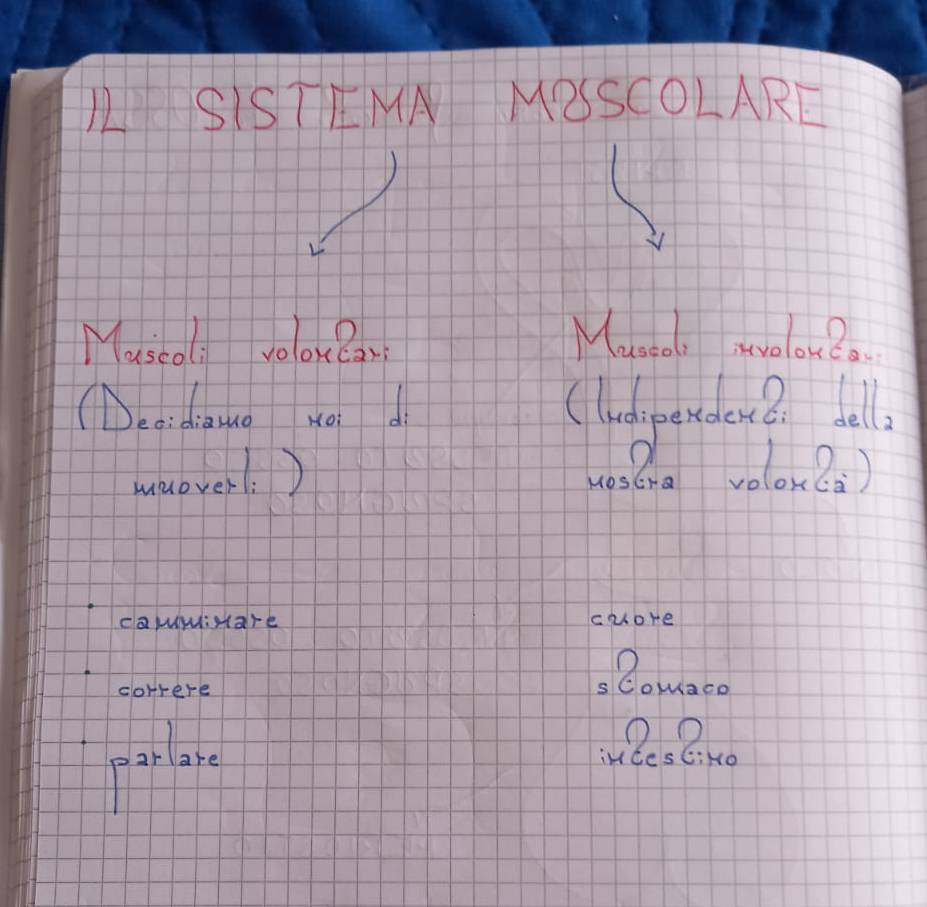 IL SISTEMA MUSCOLARE
Muscoli volontari
(Decidiamo noi di
muoverli)
camminare
correre
parlare
Muscoli involontari
(Indipendenti della
nostra volontà)
cuore
stomaco
intestino